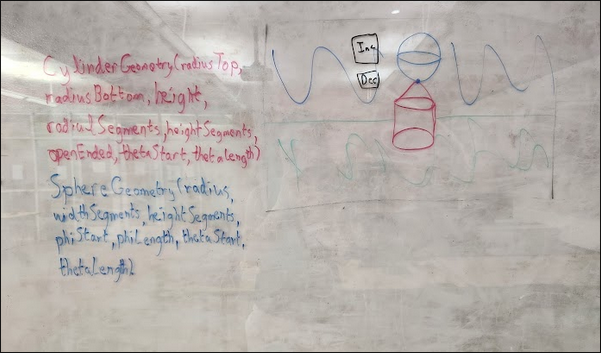 CylinderGeometry(radiusTop,
radiusBottom, height,
radialSegments, heightSegments,
openEnded, thetaStart, thetaLength)
SphereGeometry(radius,
widthSegments, heightSegments,
phiStart, phiLength, thetaStart,
thetaLength)
Inc
Dec